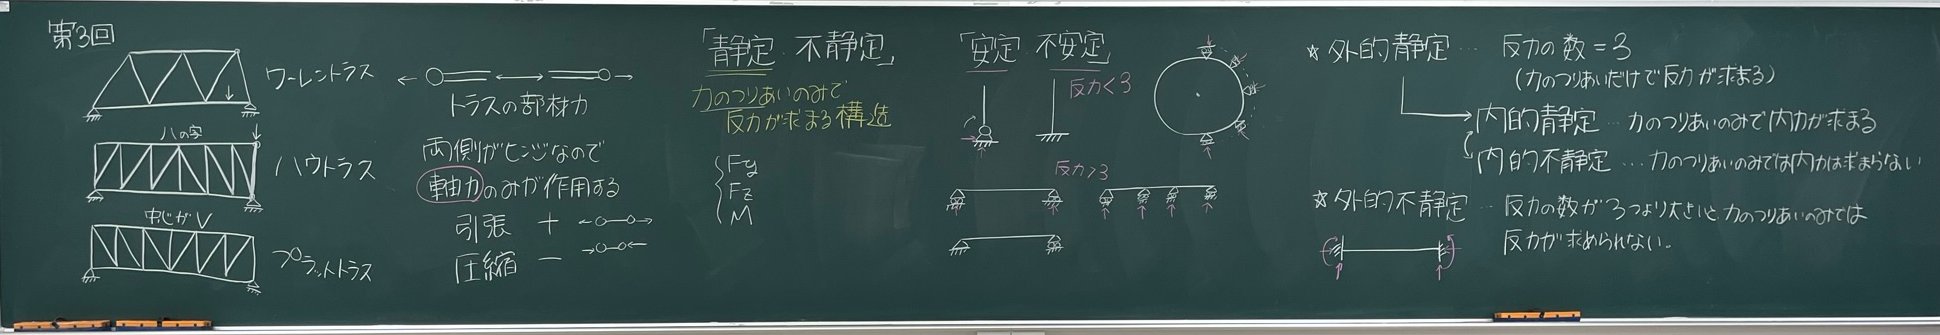 第3回
ワーレントラス
八の字
ハウトラス
中じが V
プラットトラス
トラスの部材力
両側がヒンジなので
軸力のみが作用する
引張 +
圧縮 -
「静定 不静定」
力のつりあいのみで
反力が求まる構造
Fy
Fz
M
「安定 不安定」
反力<3
反力>3
☆外的静定 … 反力の数=3
(力のつりあいだけで反力が求まる)
内的静定 … 力のつりあいのみで内力が求まる
内的不静定 … 力のつりあいのみでは内力は求まらない
☆外的不静定 … 反力の数が3つより大きいと力のつりあいのみでは
反力が求められない。